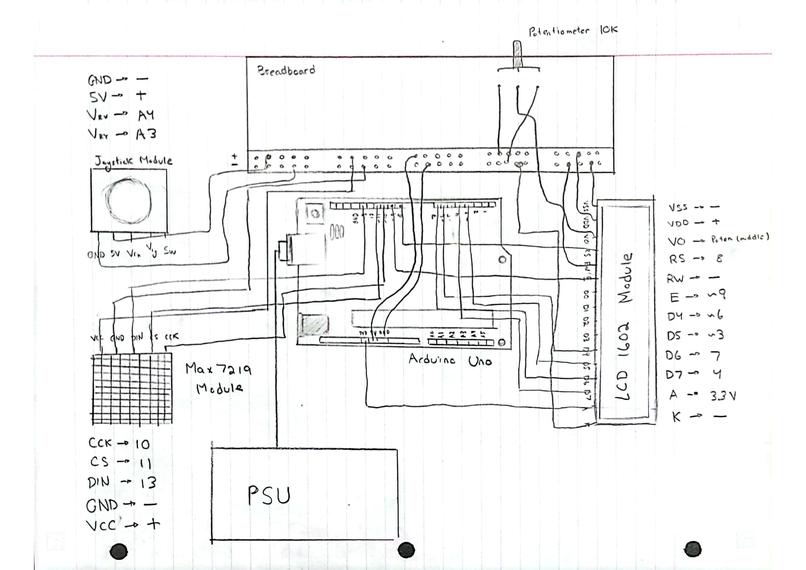 Potentiometer 10K
Breadboard
GND → -
5V → +
VRX → A4
VRY → A3
Joystick Module
+
-
GND 5V Vrx Vry SW
GND
VSS
VDD
VO
VSS → -
VDD → +
VO → Poten (middle)
RS → 8
RW → -
E → ~9
D4 → ~6
D5 → ~3
D6 → 7
D7 → 4
A → 3.3V
K → -
LCD 1602 Module
Arduino Uno
VCC GND DIN CS CCK
Max 7219
Module
CCK → 10
CS → 11
DIN → 13
GND → -
VCC → +
PSU